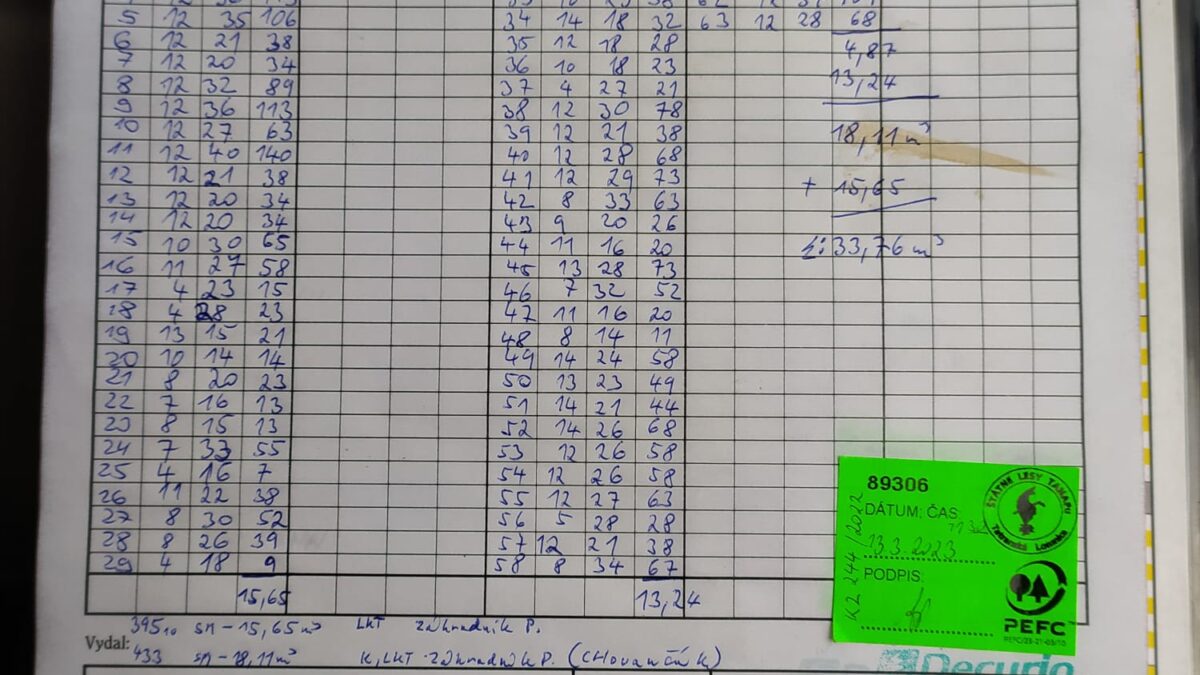 5 12 35 106 34 14 18 32 63 12 28 68
6 12 21 38 35 12 18 28 4,87
7 12 20 34 36 10 18 23
8 12 32 89 37 4 27 21 13,24
9 12 36 113 38 12 30 78
10 12 27 63 39 12 21 38 18,11 m³
11 12 40 140 40 12 28 68
12 12 21 38 41 12 29 73 + 15,65
13 12 20 34 42 8 33 63
14 12 20 34 43 9 20 26
15 10 30 65 44 11 16 20 Σ: 33,76 m³
16 11 27 58 45 13 28 73
17 4 23 15 46 7 32 52
18 4 28 23 47 11 16 20
19 13 15 21 48 8 14 11
20 10 14 14 49 14 24 58
21 8 20 23 50 13 23 49
22 7 16 13 51 14 21 44
23 8 15 13 52 14 26 68
24 7 33 55 53 12 26 58
25 4 16 7 54 12 26 58
26 11 22 38 55 12 27 63
27 8 30 52 56 5 28 28
28 8 26 39 57 12 21 38
29 4 18 9 58 8 34 67
15,65 13,24
89306
DÁTUM; ČAS
13.3.2023
PODPIS
KZ 244/2022
ŠTÁTNE LESY TANAPU
Tatranská Lomnica
PEFC
Vydal:
395 10 sm - 15,65 m³ LKT Záhradník P.
433 sm - 18,11 m³ K, LKT Záhradník P. (CHovančák)
Decurio